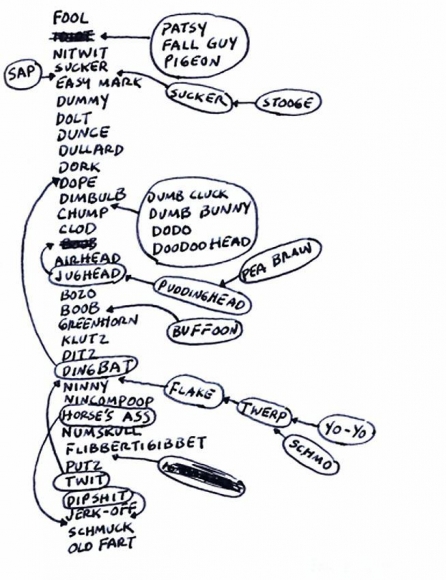 FOOL
PATSY
FALL GUY
PIGEON
NITWIT
SUCKER
SAP
EASY MARK
SUCKER
STOOGE
DUMMY
DOLT
DUNCE
DULLARD
DORK
DOPE
DIMBULB
CHUMP
CLOD
DUMB CLUCK
DUMB BUNNY
DODO
DOODOO HEAD
BOOB
AIRHEAD
JUGHEAD
PUDDINGHEAD
PEA BRAIN
BOZO
BOOB
GREENHORN
BUFFOON
KLUTZ
DITZ
DINGBAT
NINNY
FLAKE
NINCOMPOOP
TWERP
YO-YO
SCHMO
HORSE'S ASS
NUMSKULL
FLIBBERTIGIBBET
PUTZ
TWIT
DIPSHIT
JERK-OFF
SCHMUCK
OLD FART